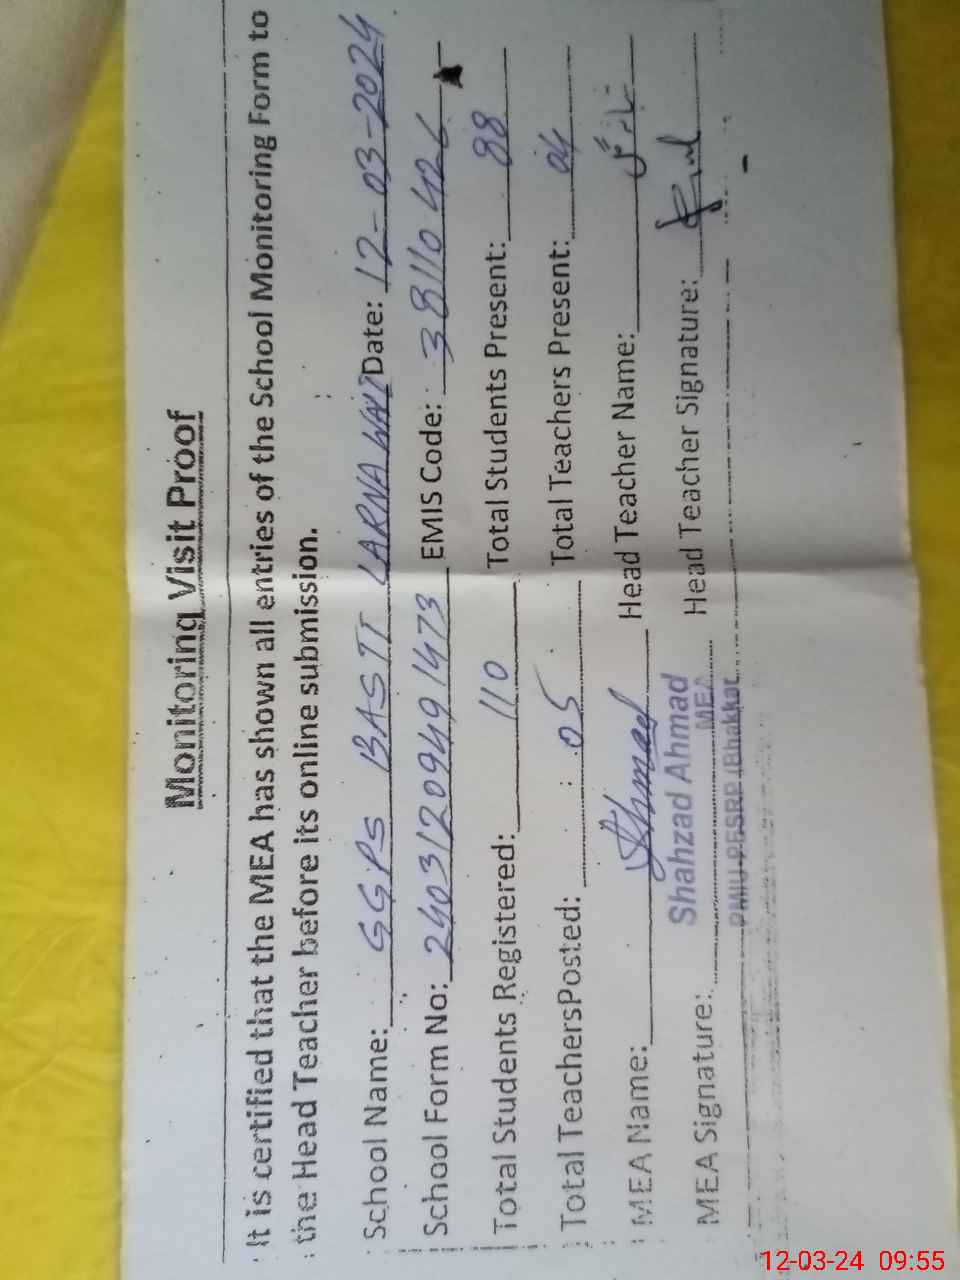 Monitoring Visit Proof
It is certified that the MEA has shown all entries of the School Monitoring Form to
the Head Teacher before its online submission.
School Name: GGPS BASTI LARNA WALI Date: 12-03-2024
School Form No: 24031209491473 EMIS Code: 38110426
Total Students Registered: 110 Total Students Present: 88
Total TeachersPosted: 05 Total Teachers Present: 04
MEA Name: Ahmad Head Teacher Name:
MEA Signature: Shahzad Ahmad Head Teacher Signature:
MEA
PMIU-PESRP (Bhakkar
12-03-24 09:55